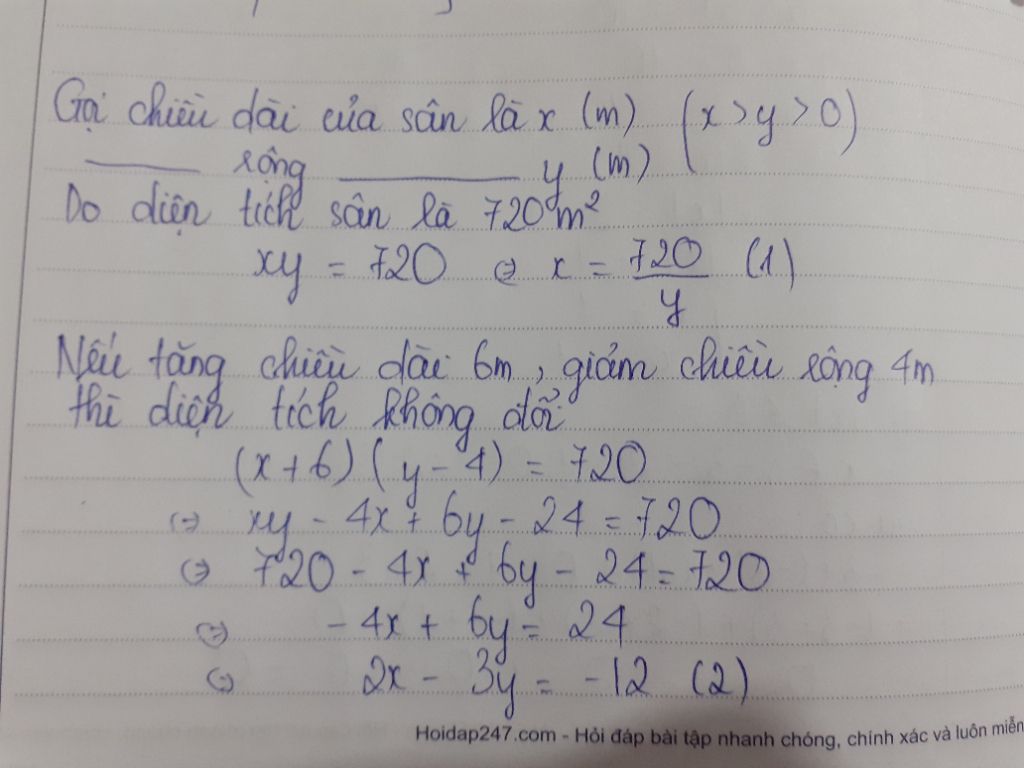 Gọi chiều dài của sân là x (m) (x > y > 0)
——— rộng ————— y (m)
Do diện tích sân là 720 m²
xy = 720 ⇔ x = 720/y (1)
Nếu tăng chiều dài 6m, giảm chiều rộng 4m
thì diện tích không đổi
(x + 6) (y - 4) = 720
⇔ xy - 4x + 6y - 24 = 720
⇔ 720 - 4x + 6y - 24 = 720
⇔ - 4x + 6y = 24
⇔ 2x - 3y = -12 (2)
Hoidap247.com - Hỏi đáp bài tập nhanh chóng, chính xác và luôn miễn